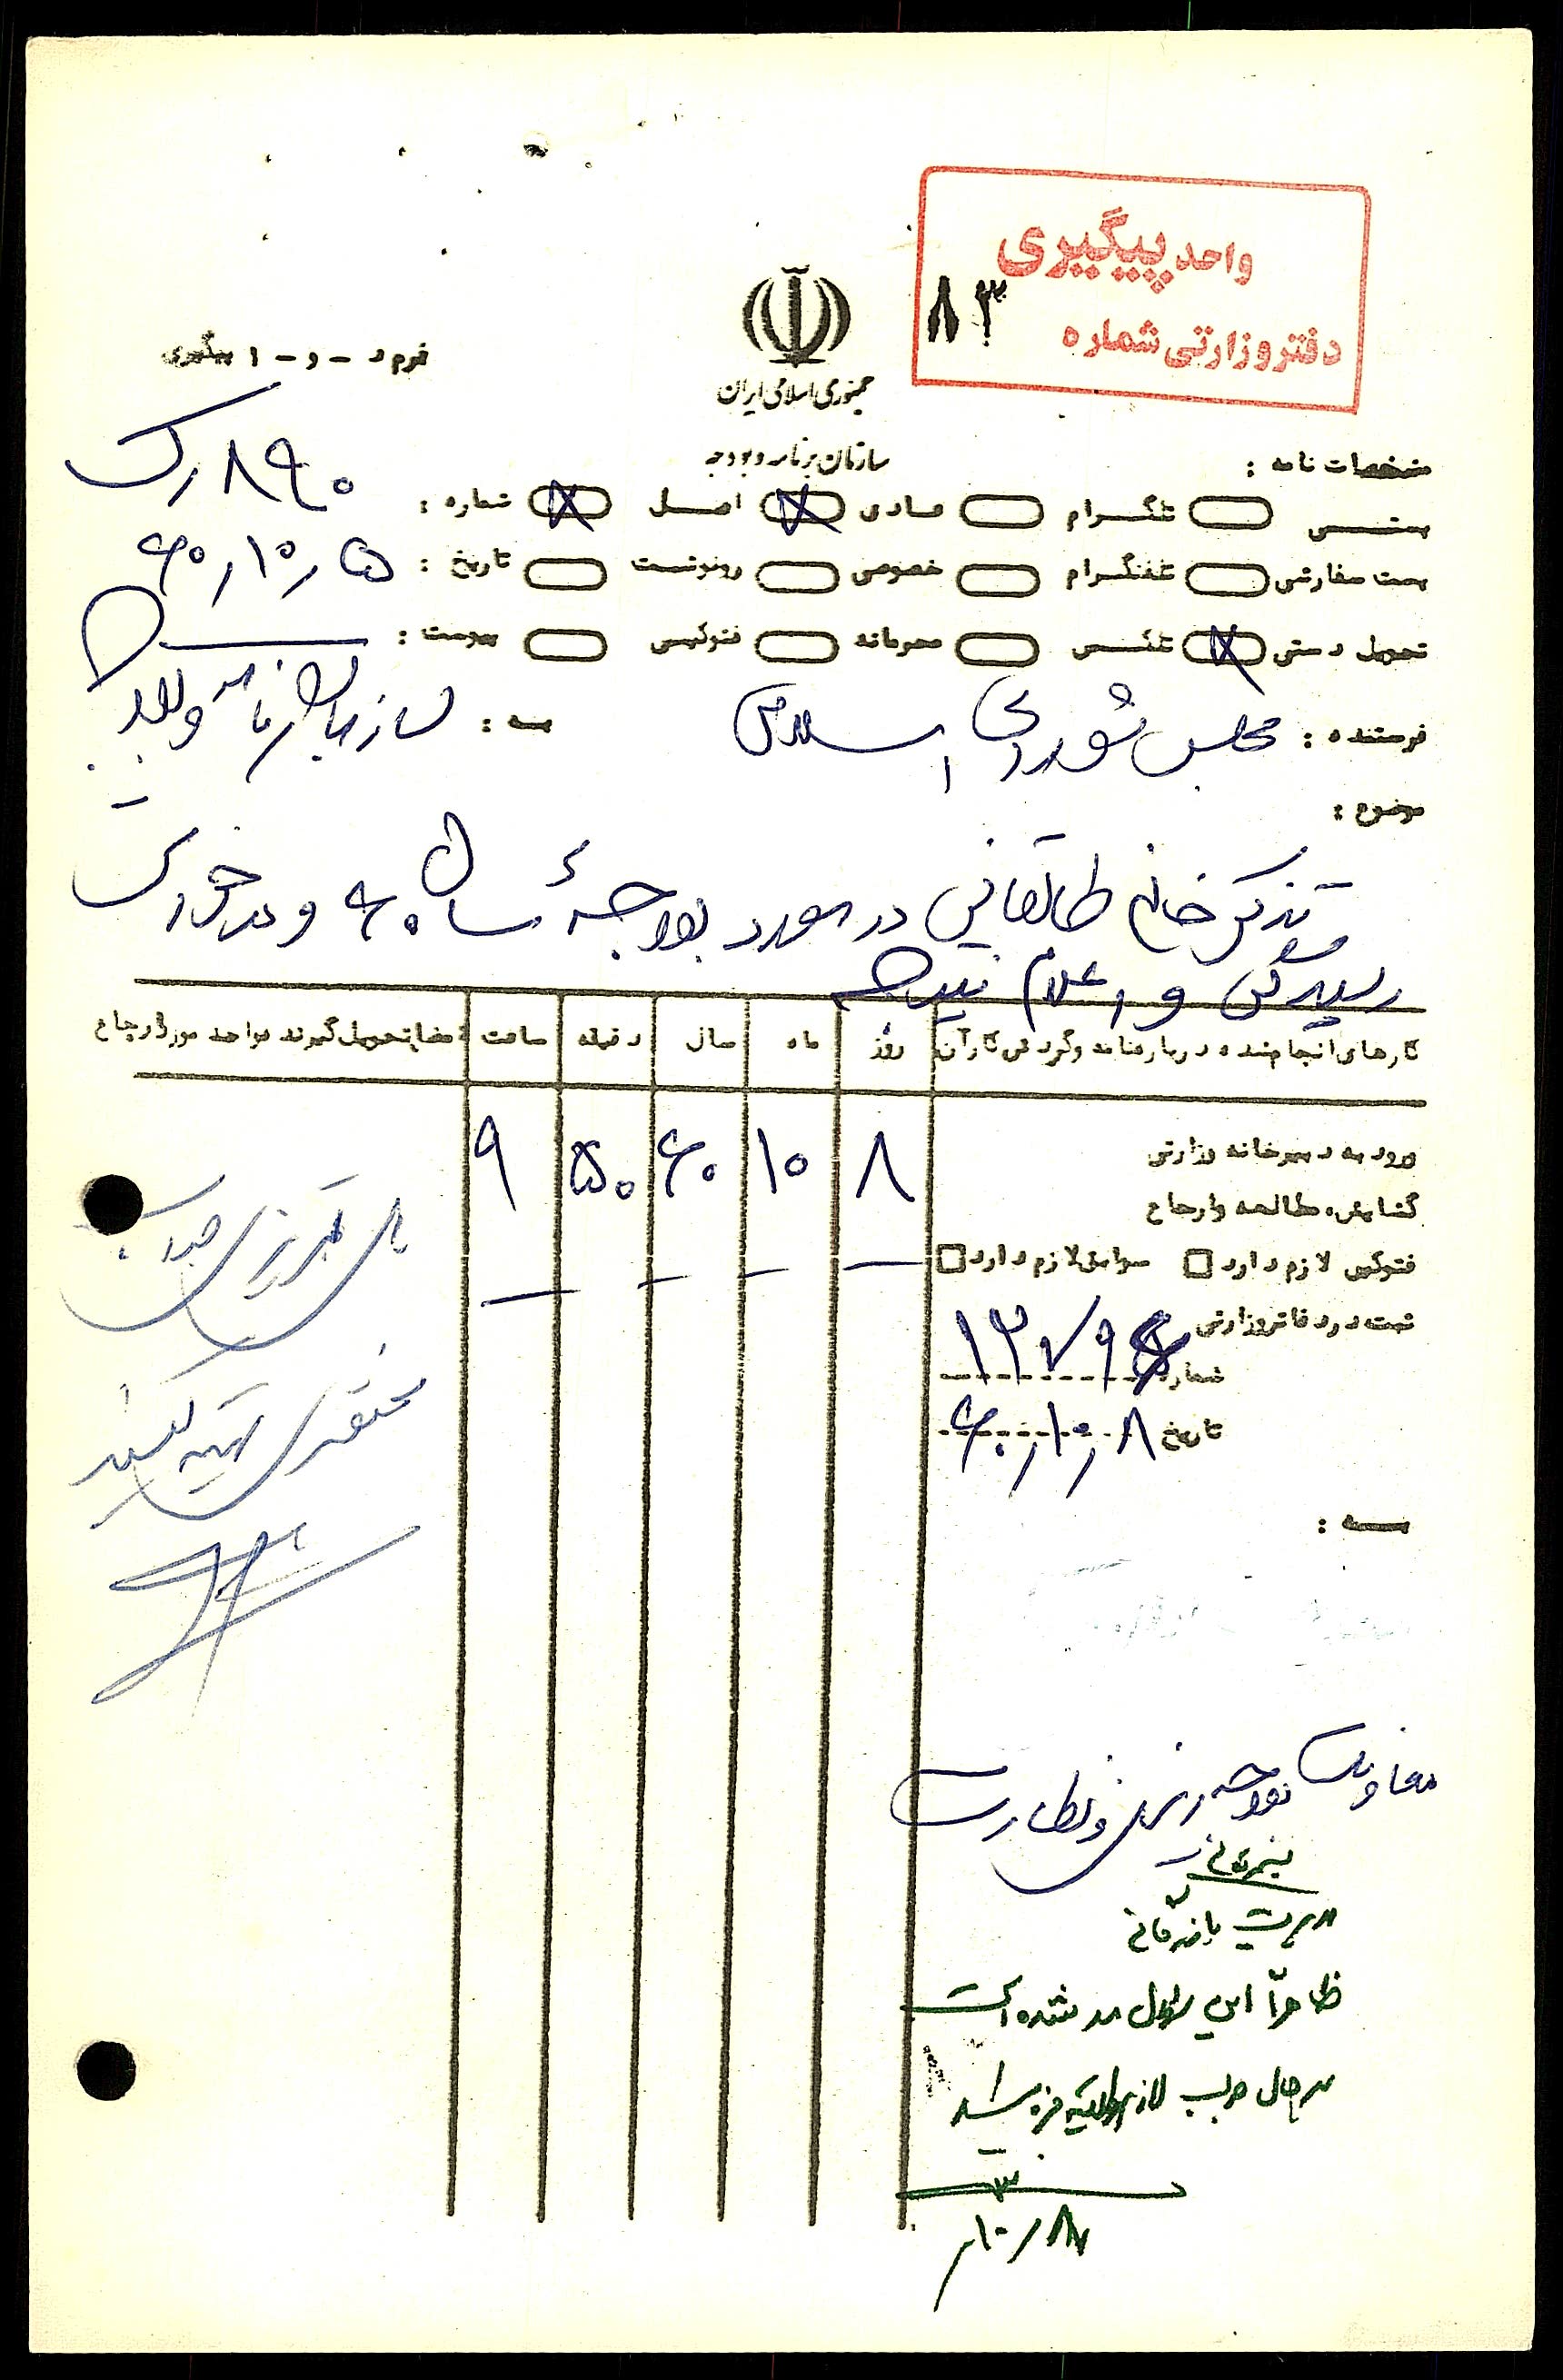 واحد پیگیری
دفتر وزارتی شماره ۸۳
جمهوری اسلامی ایران
سازمان برنامه و بودجه
فرم د - و - ۱ پیگیری
مشخصات نامه :
پستی تلگرام عادی اصل شماره : ۸۹۰
پست سفارشی تلفنگرام خصوصی رونوشت تاریخ : ۶۰/۱۰/۵
تحویل دستی تلکس محرمانه فتوکپی پیوست :
فرستنده : مجلس شورای اسلامی به : سازمان برنامه و بودجه
موضوع :
تذکر خانم طالقانی در مورد بودجهٔ سال ۶۰ و درخواست
رسیدگی و اعلام نتیجه
کارهای انجام شده درباره نامه و گردش کار آن روز ماه سال دقیقه ساعت امضاء تحویل گیرنده واحد مورد ارجاع
ورود به دبیرخانه وزارتی ۸ ۱۰ ۶۰ ۵۰ ۹
گشایش، مطالعه و ارجاع
فتوکپی لازم دارد سوابق لازم دارد
ثبت در دفاتر وزارتی
شماره
تاریخ ۶۰/۱۰/۸
به :
تهیه کنید
معاونت بودجه ریزی و نظارت
مدیریت
ظاهراً این سوال شده است
۱۰/۸